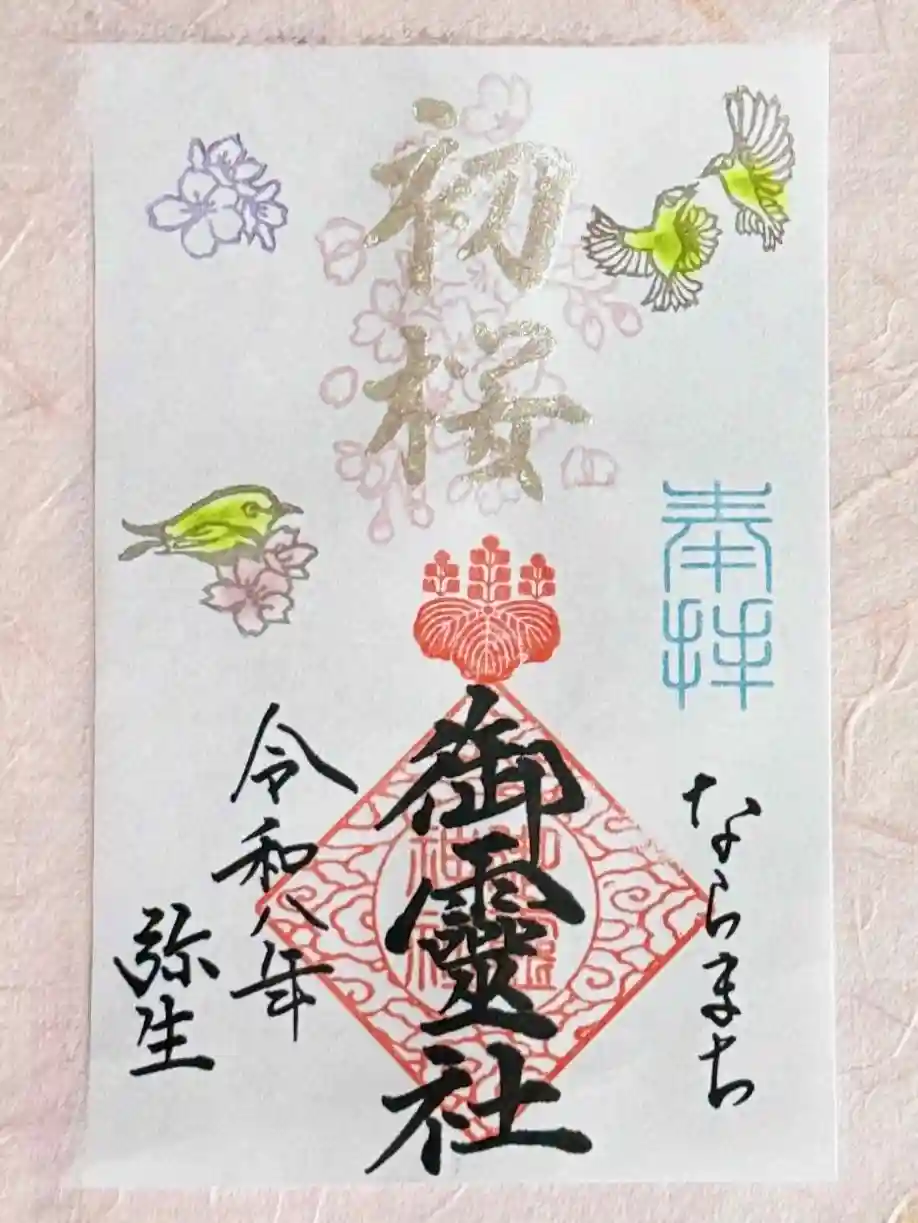 奉拝
ならまち
初桜
御靈社
御霊
神社
令和八年
弥生